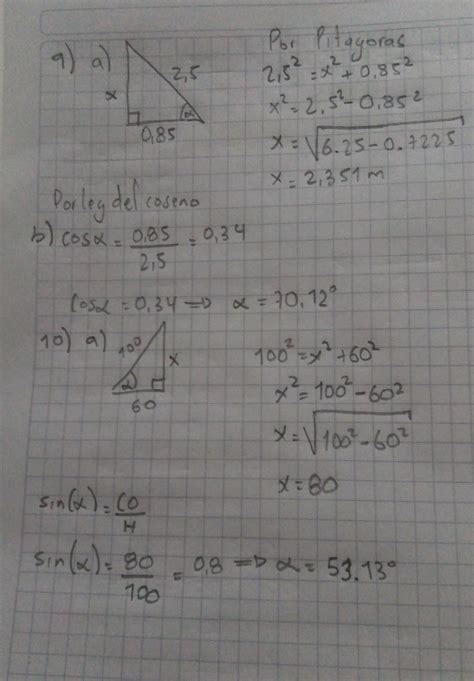 9) a)
x
2,5
α
0,85
Por Pitágoras
2,5² = x² + 0,85²
x² = 2,5² - 0,85²
x = √6.25 - 0.7225
x = 2,351 m
Por ley del coseno
b) cosα = 0,85/2,5 = 0,34
cosα = 0,34 => α = 70,12°
10) a)
100
x
α
60
100² = x² + 60²
x² = 100² - 60²
x = √100² - 60²
x = 80
sin(α) = CO/H
sin(α) = 80/100 = 0,8 => α = 53.13°